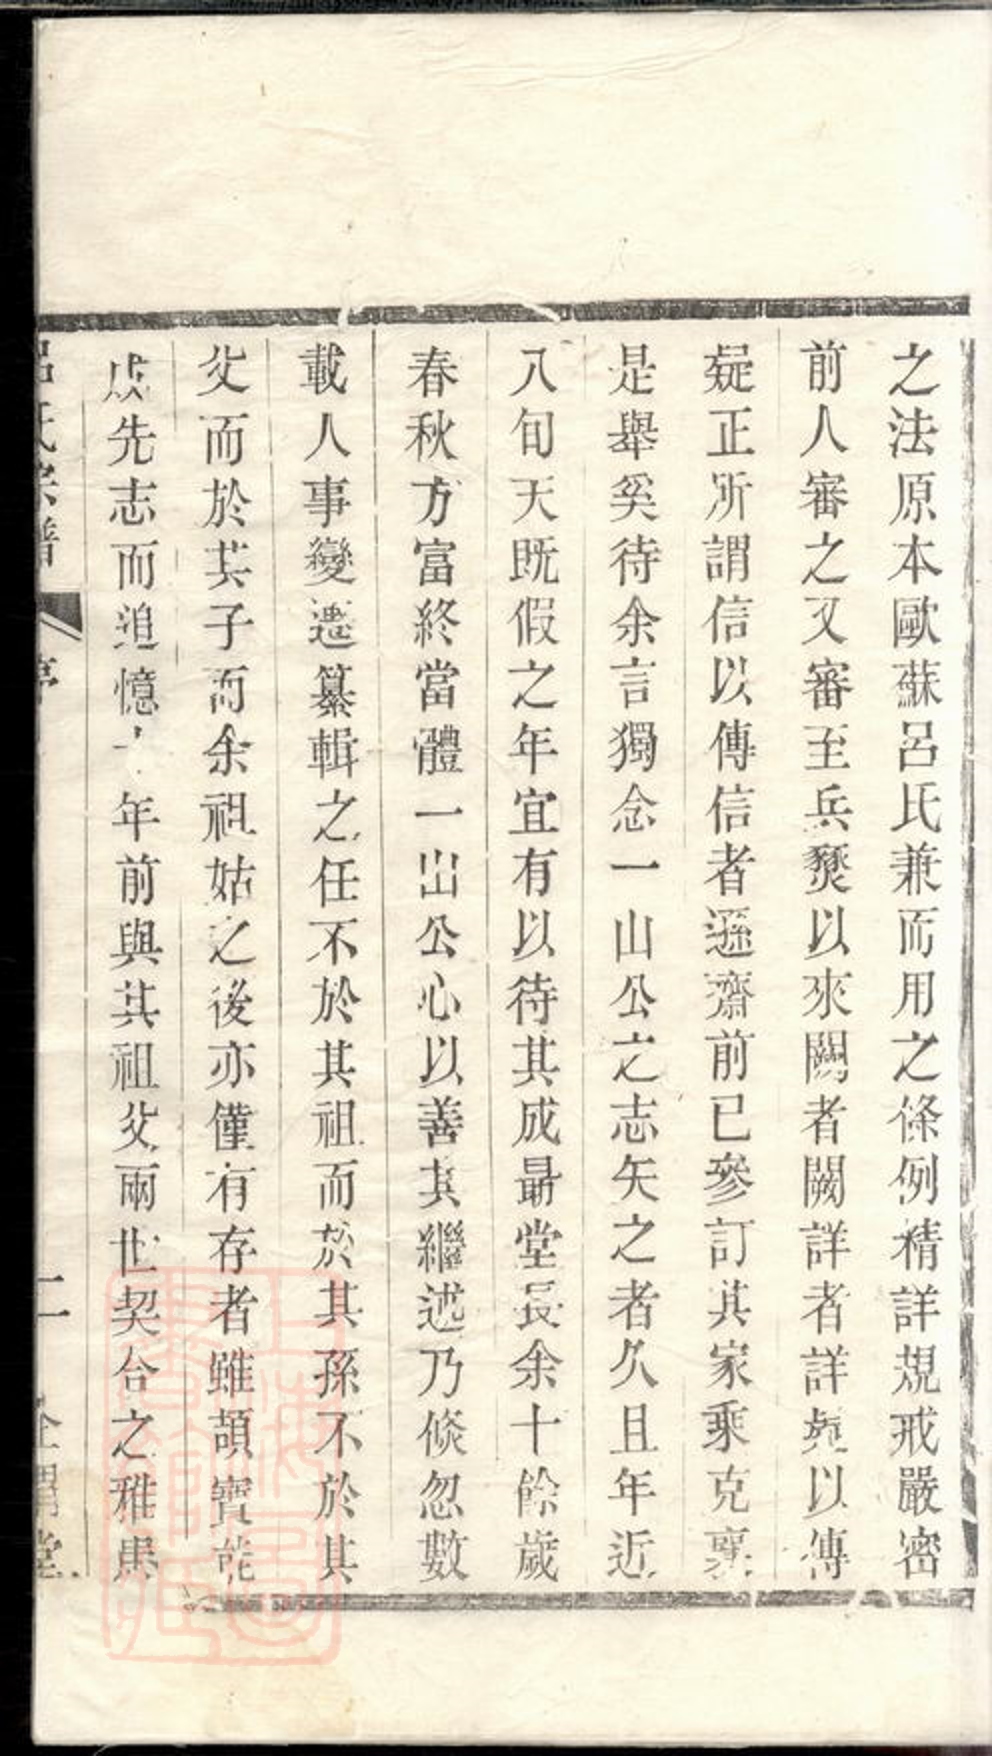 之法原本歐蘇呂氏兼而用之條例精詳規戒嚴密
前人審之又審至兵燹以來闕者闕詳者詳疑以傳
疑正所謂信以傳信者遜齋前已參訂其家乘克襄
是舉奚待余言獨念一山公之志矢之者久且年近
八旬天既假之年宜有以待其成最堂長余十餘歲
春秋方富終當體一山公心以善其繼述乃倐忽數
載人事變遷纂輯之任不於其祖而於其孫不於其
父而於其子而余祖姑之後亦僅有存者雖頡寶能
成先志而追憶十年前與其祖父兩世契合之雅
呂氏宗譜 序 二 堂